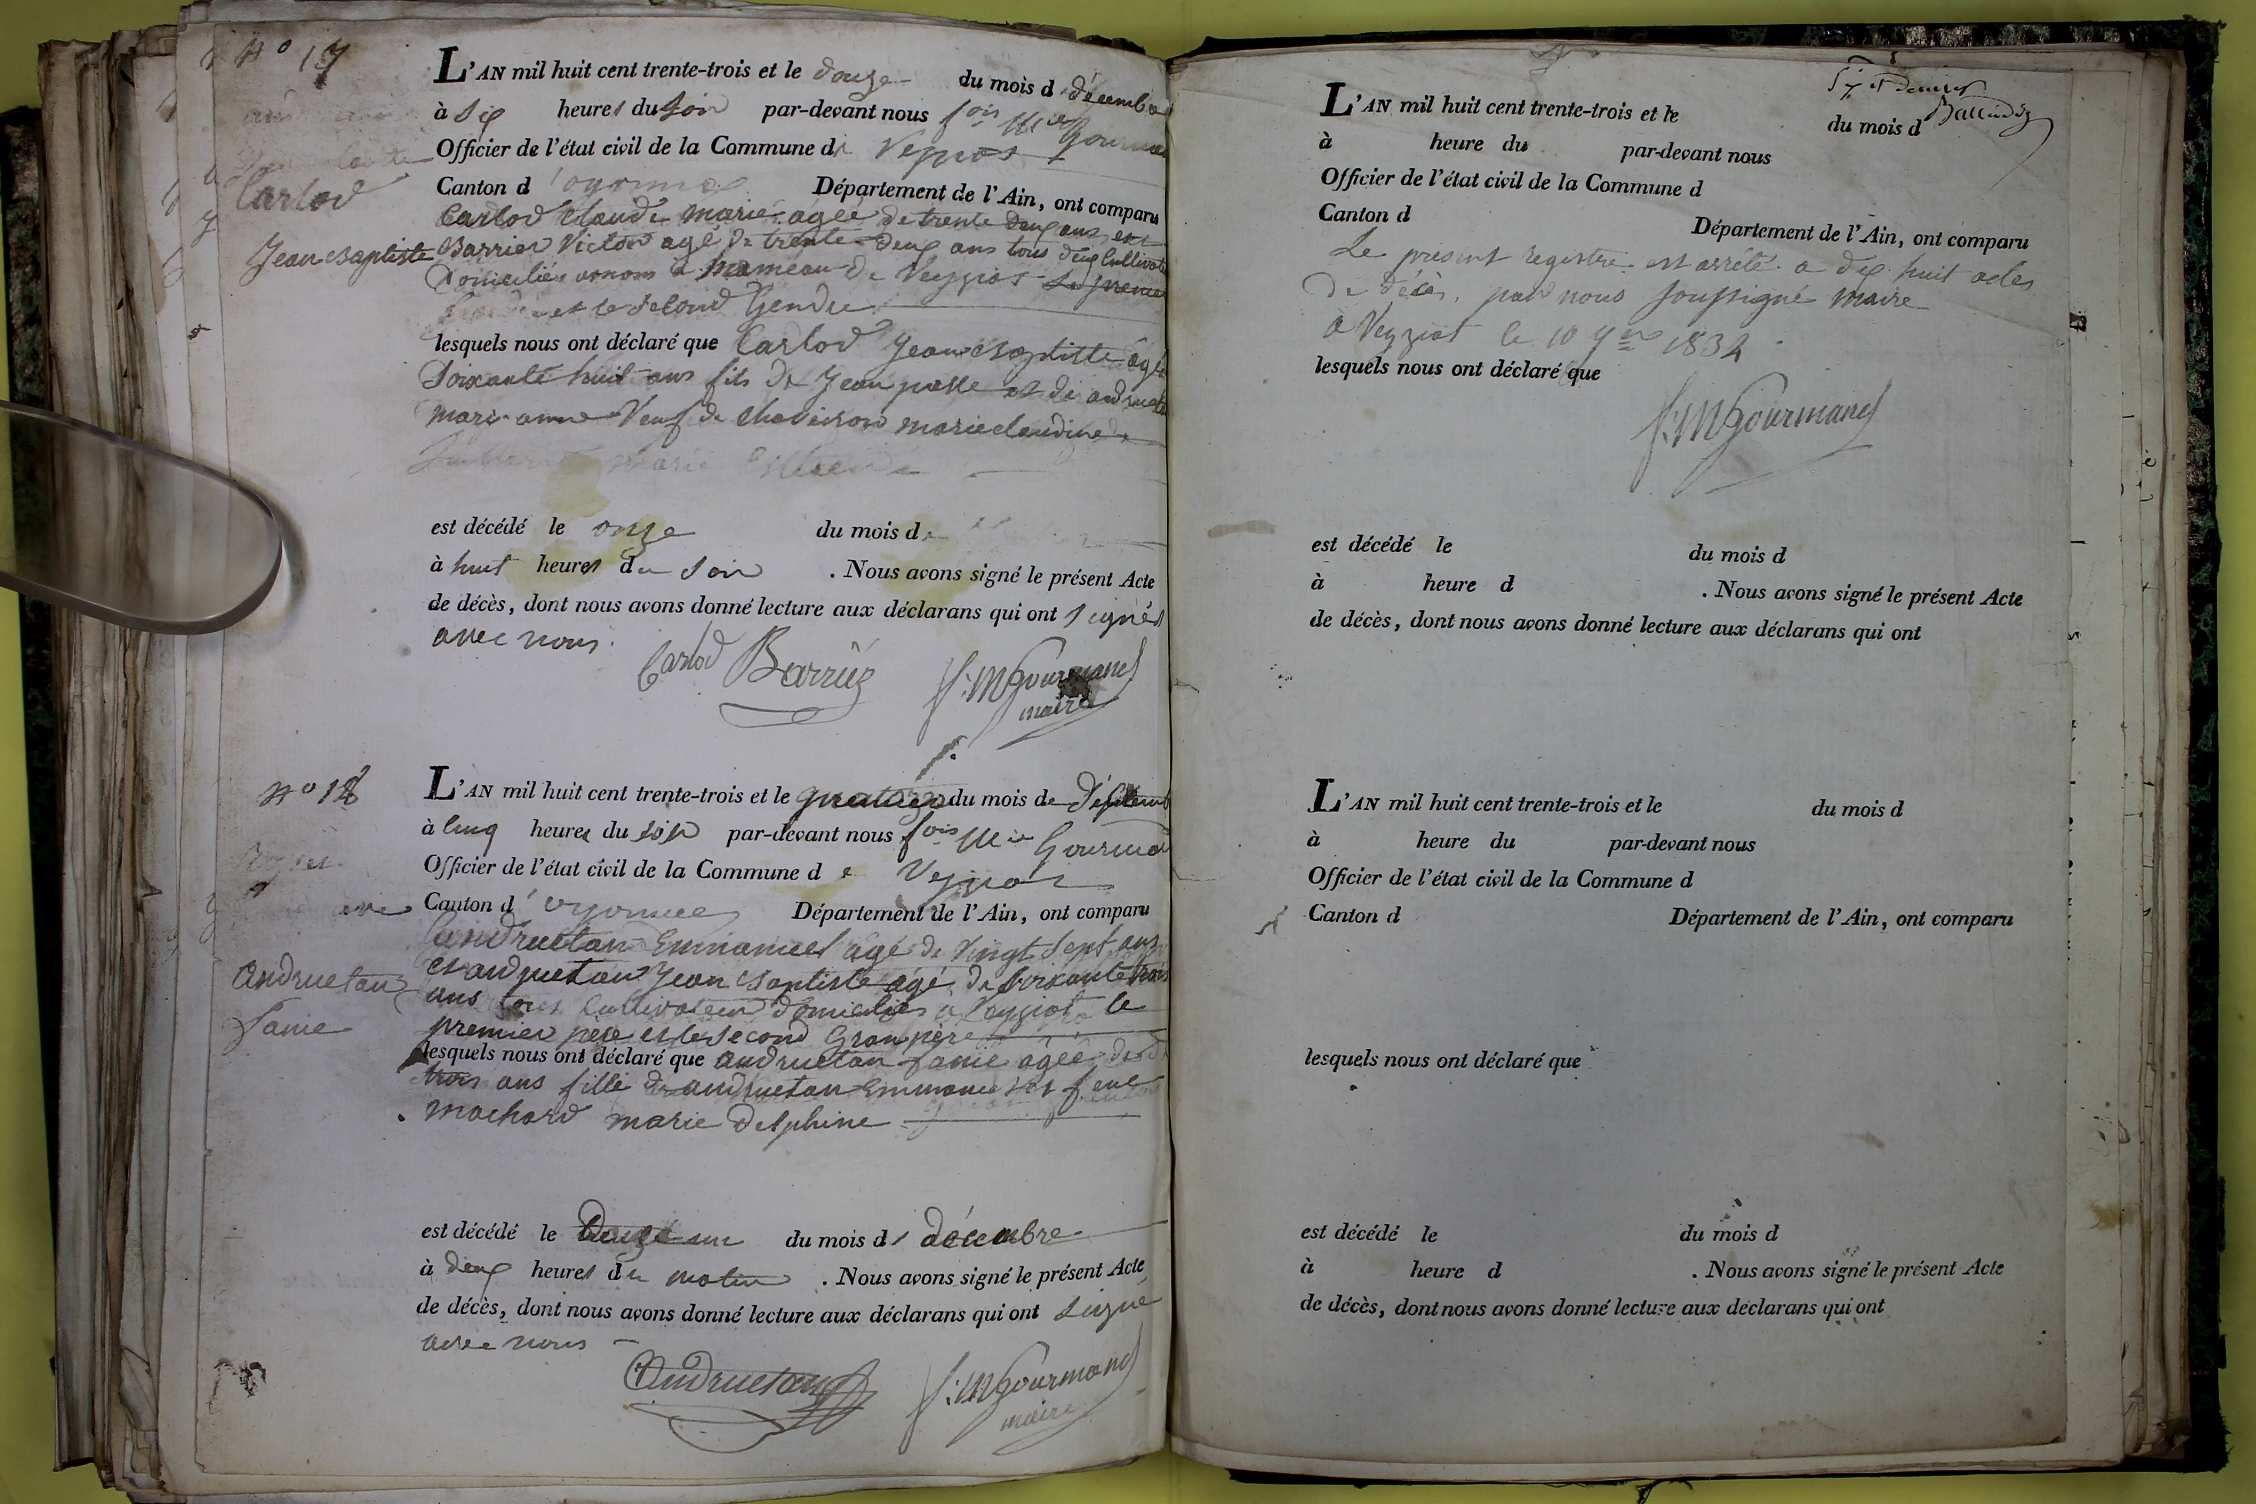 N° 17
L'AN mil huit cent trente-trois et le douze du mois de décembre
à six heures du soir par-devant nous fois Mie Gourmand
Officier de l'état civil de la Commune de Veyziat
Canton d'oyonnax Département de l'Ain, ont comparu
Carlod
Carlod Claude Marie agée de trente deux ans et
Jean Baptiste
Barrier Victor agé de trente deux ans tous deux Cultivateurs
Domiciliés hameau de Veyziat le premier
et le second Gendre
lesquels nous ont déclaré que Carlod Jean Baptiste agé
Soixante huit ans fils de Jean et de andruetan
marie anne Veuf de Chavission marie claudine
marie
est décédé le onze du mois d
à huit heures du soir . Nous avons signé le présent Acte
de décès, dont nous avons donné lecture aux déclarans qui ont signés
avec nous.
Carlod Barriez f. M Gourmand
maire
N° 18
L'AN mil huit cent trente-trois et le quatorze du mois de
à cinq heures du soir par-devant nous fois Mie Gourmand
Officier de l'état civil de la Commune de Veyziat
Canton d'oyonnax Département de l'Ain, ont comparu
andruetan Emmanuel agé de vingt sept ans
Andruetan
et andruetan Jean Baptiste agé de soixante trois
ans tous Cultivateur Domiciliés a Veyziat le
fanie
premier père et le second Gran père
lesquels nous ont déclaré que andruetan fanie agée de
trois ans fille de andruetan Emmanuel et feue
machard marie Delphine
est décédé le du mois de décembre
à deux heures du matin . Nous avons signé le présent Acte
de décès, dont nous avons donné lecture aux déclarans qui ont signé
avec nous
Andruetan f. M Gourmand
maire
L'AN mil huit cent trente-trois et le du mois d
à heure du par-devant nous
Officier de l'état civil de la Commune d
Canton d Département de l'Ain, ont comparu
Le present registre est arreté a dix huit actes
De décès, par nous soussigné maire
a Veyziat le 10 1834
lesquels nous ont déclaré que
f. M Gourmand
est décédé le du mois d
à heure d . Nous avons signé le présent Acte
de décès, dont nous avons donné lecture aux déclarans qui ont
L'AN mil huit cent trente-trois et le du mois d
à heure du par-devant nous
Officier de l'état civil de la Commune d
Canton d Département de l'Ain, ont comparu
lesquels nous ont déclaré que
est décédé le du mois d
à heure d . Nous avons signé le présent Acte
de décès, dont nous avons donné lecture aux déclarans qui ont